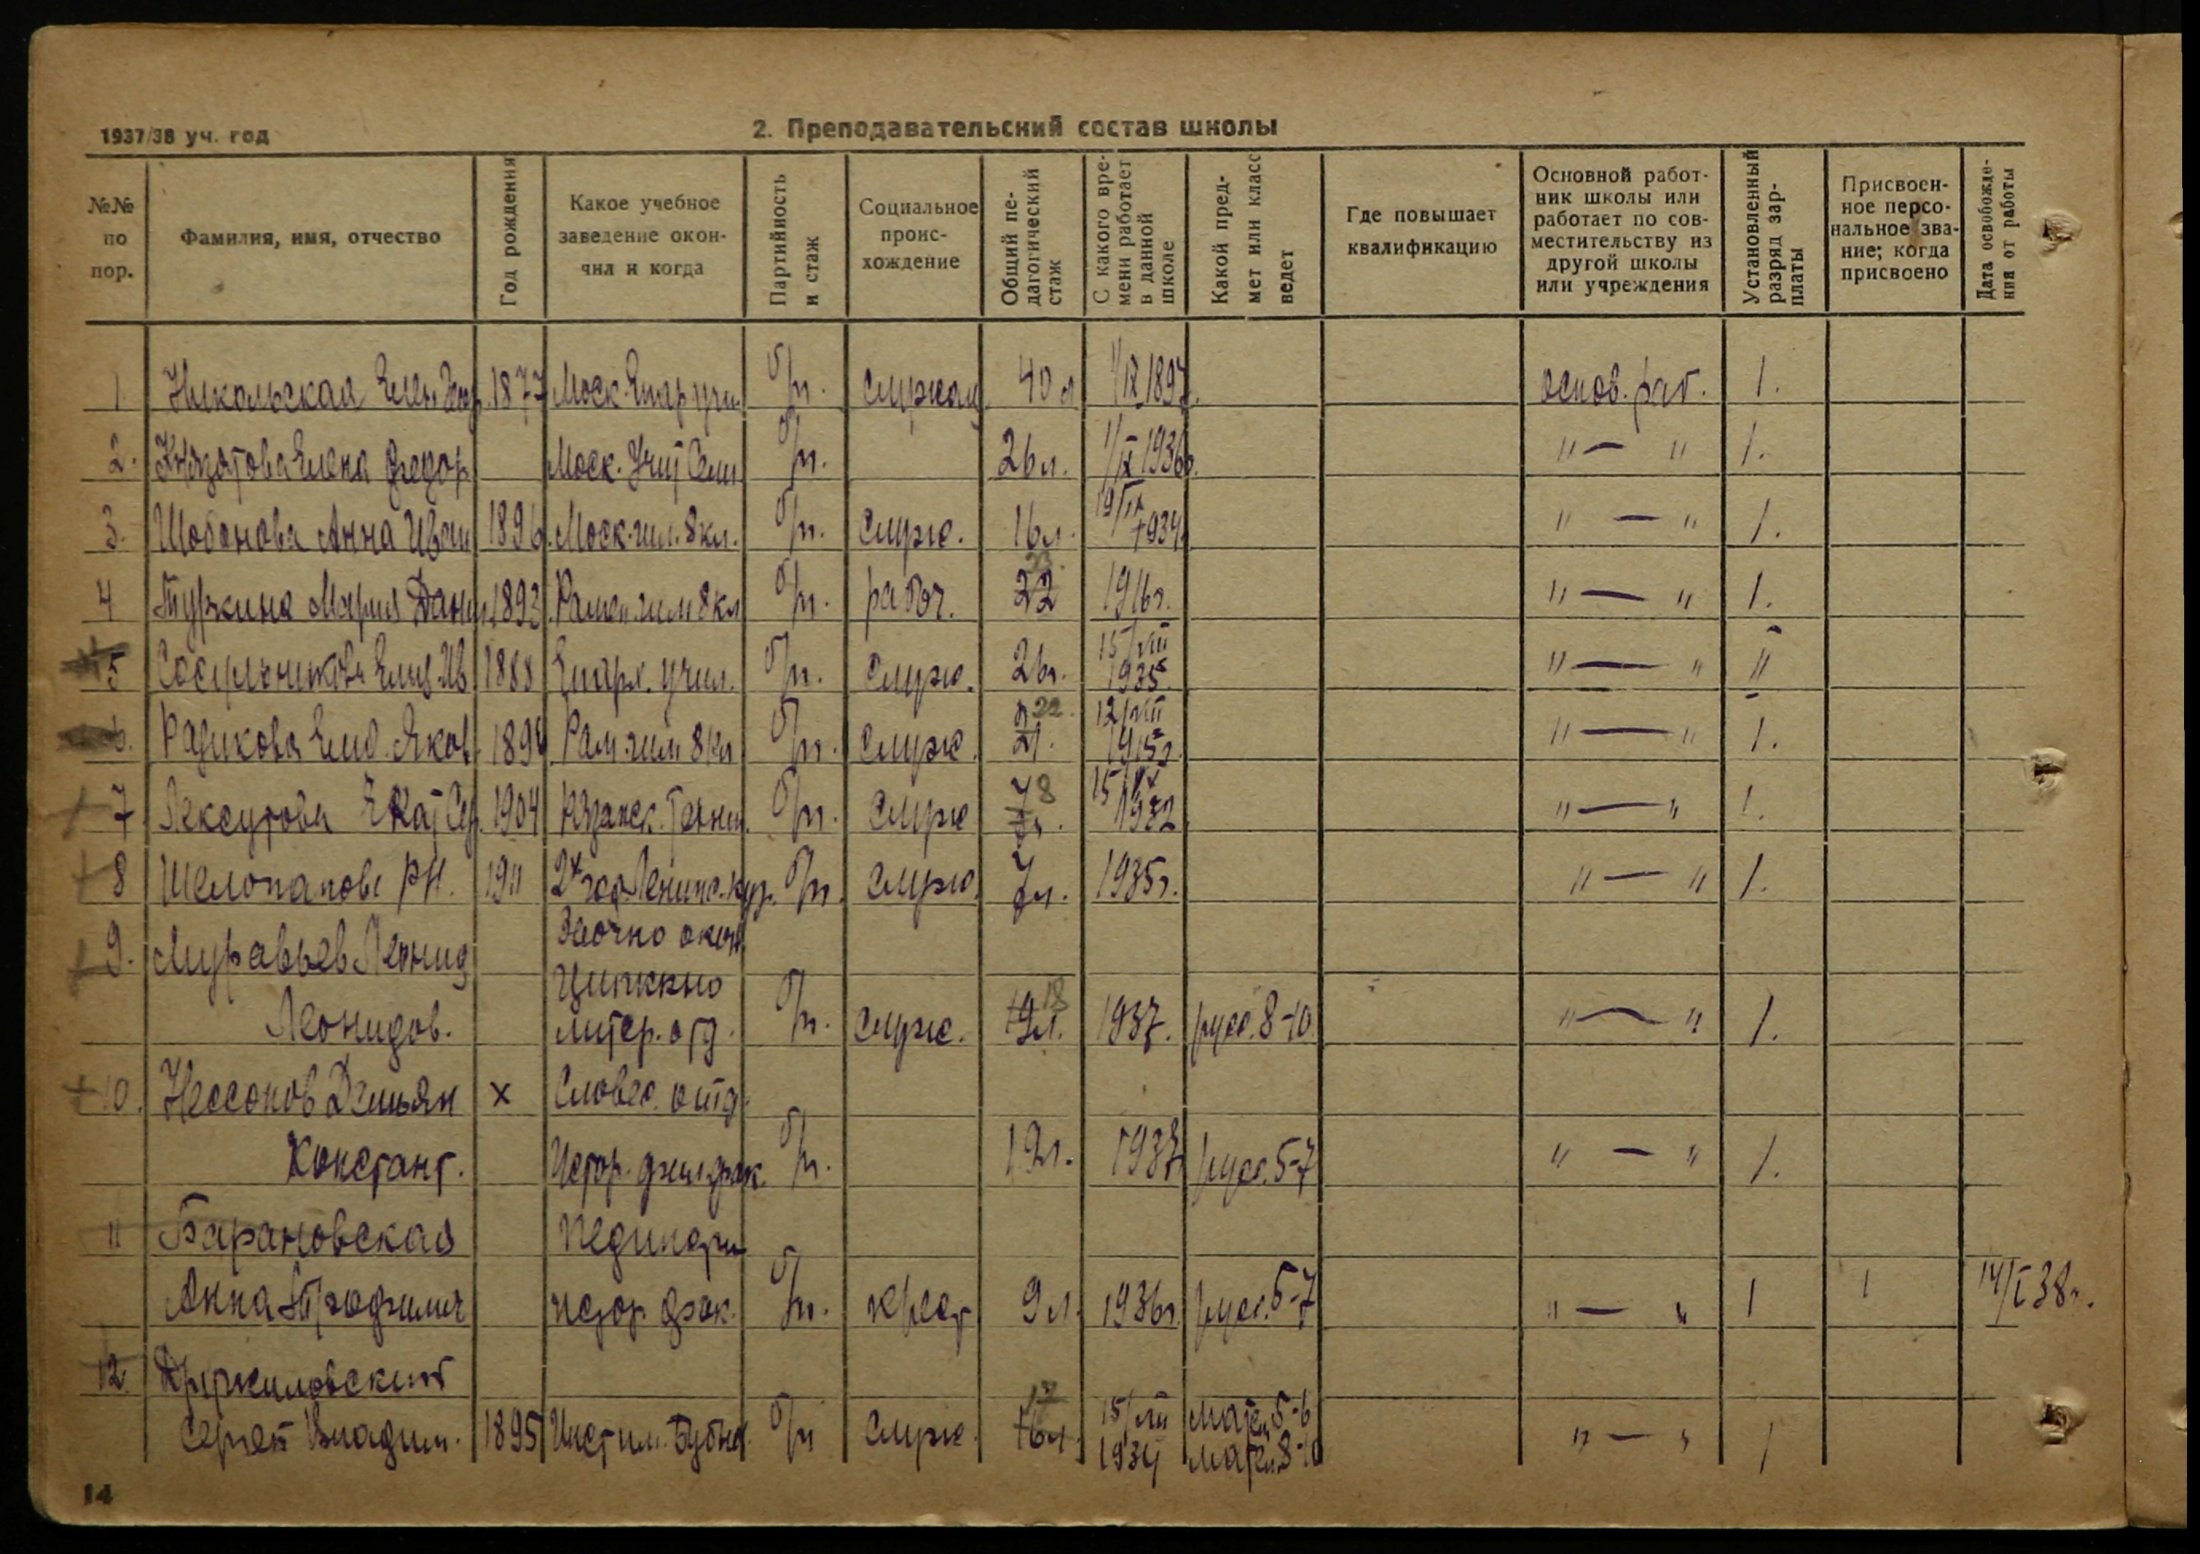 1937/38 уч. год
2. Преподавательский состав школы
№№ по пор.
Фамилия, имя, отчество
Год рождения
Какое учебное заведение окон- чил и когда
Партийность и стаж
Социальное проис- хождение
Общий пе- дагогический стаж
С какого вре- мени работает в данной школе
Какой пред- мет или класс ведет
Где повышает квалификацию
Основной работ- ник школы или работает по сов- местительству из другой школы или учреждения
Установленный разряд зар- платы
Присвоен- ное персо- нальное зва- ние; когда присвоено
Дата освобожде- ния от работы
1 Никольская Елен. 1877 Моск. Епар. учил. б/п. служащ. 40 л 1/IX 1897. основ. раб. 1.
2. Елена Федор. Моск. Учит. Сем. б/п. 26 л. 1/IX 1936г. " — " 1.
3. Шобонова Анна Иван 1896. Моск. гим. 8 кл. б/п. служ. 16 л. 19/IX 1934. " — " 1.
4 Туркина Мария Данил. 1893. Рамен. гим 8 кл б/п. рабоч. 22 1916г. " — " 1.
5 Елиз. Ив 1888 Епарх. учил. б/п. служ. 26л. 15/VIII 1935. " — " "
6. Радикова Елиз. Яков. 189 Рам. гим 8 кл б/п. служ. 21. 22 12/VIII 1915г. " — " 1.
7 Екат. Сер. 1904 Рязанск. Техник. б/п. служ 8 15/IX 1932 " — " 1.
8 Шелопанова Р.Н. 1911 2х год. Ленинс. кур. б/п. служ. 7 л. 1935г. " — " 1.
9. Муравьев Леонид Заочно окон.
Ципккно
Леонидов. литер. отд. б/п. служ. 19л. 18 1937. русс. 8-10. " — " 1.
10. Нессонов Демьян х Словес. отд.
Констант. Истор. фил. фак. б/п. 19л. 1937 русс. 5-7 " — " 1.
11 Барановская Пединсти
Анна Трофимич истор. фак. б/п. крест 9 л. 1936г. русс. 5-7 " — " 1 1 14/I 38г.
12
Сергей Владим. 1895 Инст им. Бубно. б/п служ. 16л. 17 15/VIII 1934 Матем 5-6 Матем. 8-10 " — " 1
14